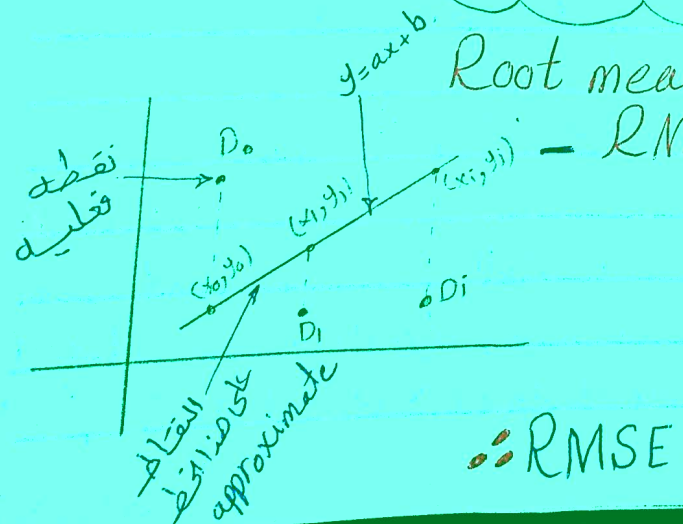 y=ax+b
Root mea
- RM
نقطه
فعليه
D₀
(x₀,y₀)
(x₁,y₁)
(xi,yi)
D₁
Di
النقاط
على هذا الخط
approximate
∴RMSE